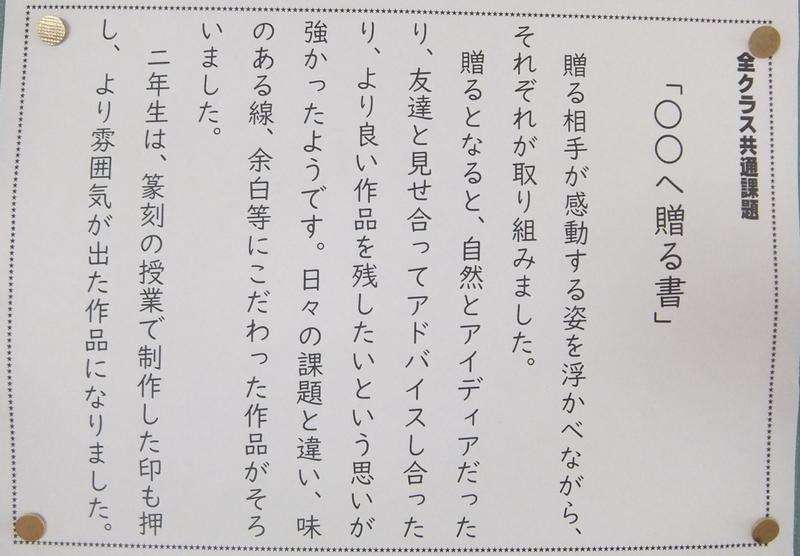 全クラス共通課題
「〇〇へ贈る書」
贈る相手が感動する姿を浮かべながら、
それぞれが取り組みました。
贈るとなると、自然とアイディアだった
り、友達と見せ合ってアドバイスし合った
り、より良い作品を残したいという思いが
強かったようです。日々の課題と違い、味
のある線、余白等にこだわった作品がそろ
いました。
二年生は、篆刻の授業で制作した印も押
し、より雰囲気が出た作品になりました。